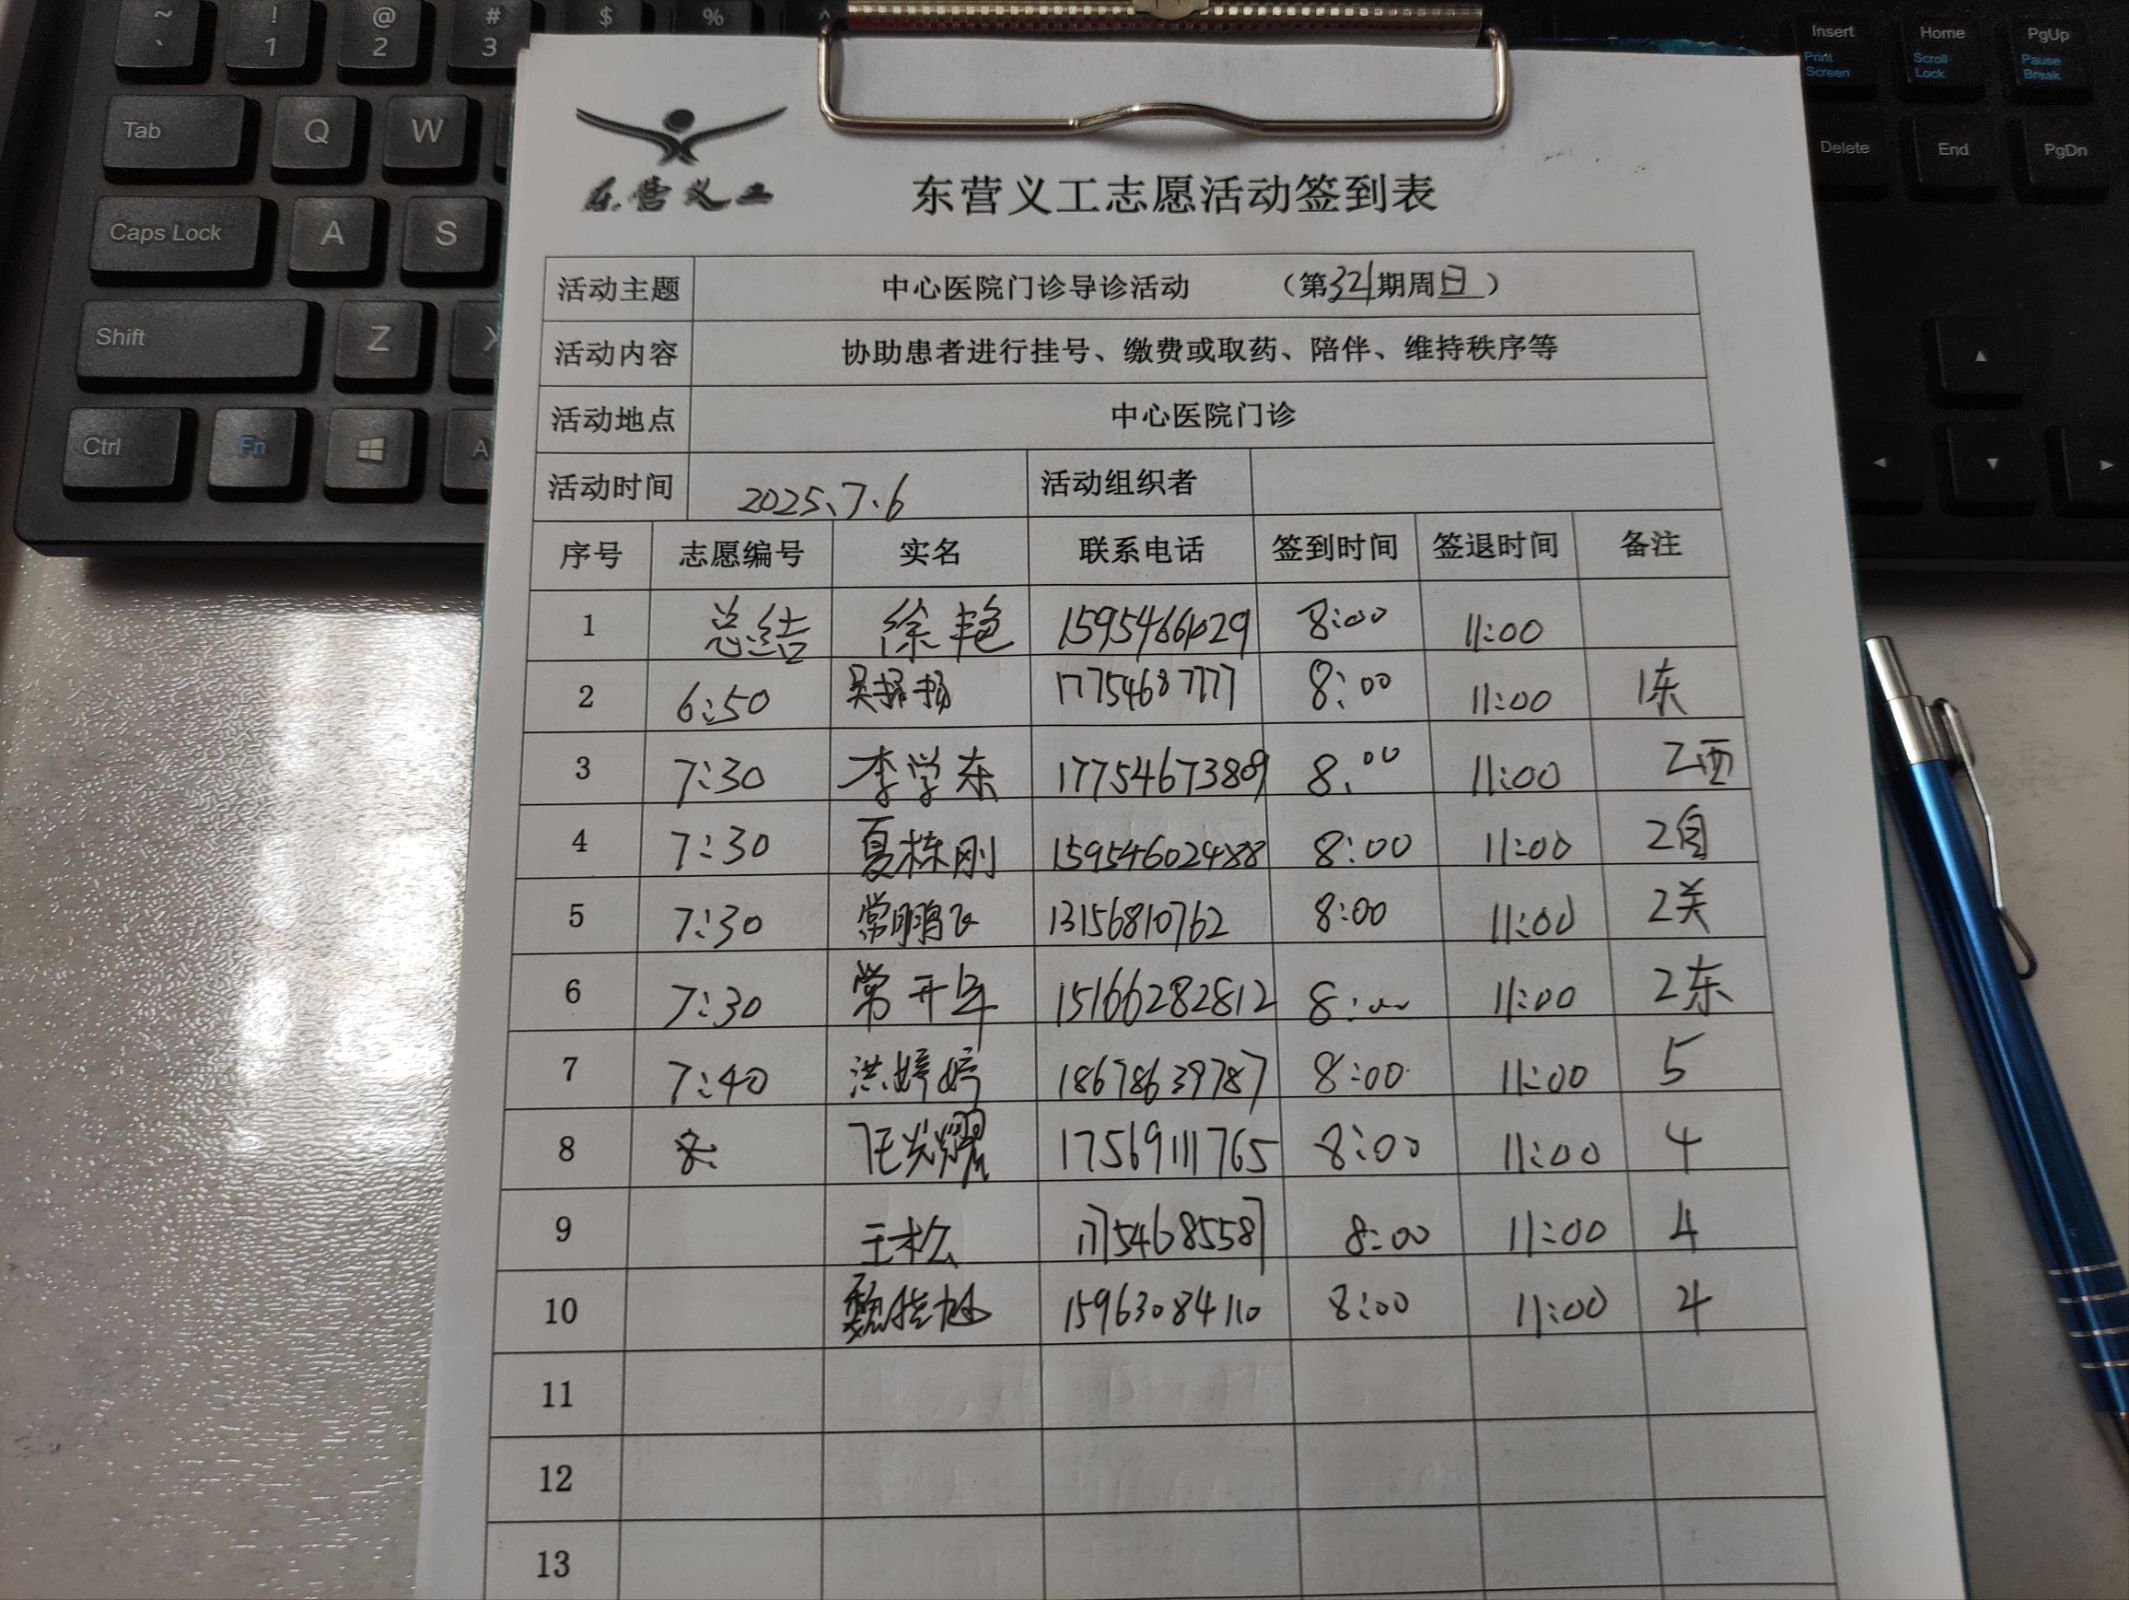 ~ ! @ # $ % ^
` 1 2 3
Insert Home PgUp
Print Screen Scroll Lock Pause Break
Tab Q W
Delete End PgDn
Caps Lock A S
Shift Z X
Ctrl Fn A
东营义工
东营义工志愿活动签到表
活动主题 中心医院门诊导诊活动 （第321期周日）
活动内容 协助患者进行挂号、缴费或取药、陪伴、维持秩序等
活动地点 中心医院门诊
活动时间 2025、7、6 活动组织者
序号 志愿编号 实名 联系电话 签到时间 签退时间 备注
1 总结 徐艳 15954661029 8:00 11:00
2 6:50 吴扬扬 17754687777 8:00 11:00 1东
3 7:30 李学东 17754673809 8:00 11:00 2西
4 7:30 夏栋刚 8:00 11:00 2自
5 7:30 常鹏飞 13156810762 8:00 11:00 2关
6 7:30 常开年 15166282812 8:00 11:00 2东
7 7:40 洪婷婷 18678639787 8:00 11:00 5
8 任光耀 17569111765 8:00 11:00 4
9 王松 17754685587 8:00 11:00 4
10 魏 15963084110 8:00 11:00 4
11
12
13